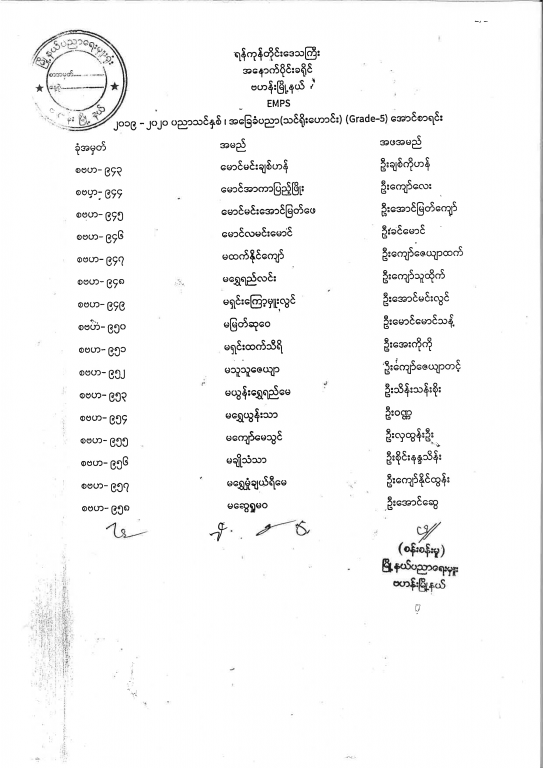 မြို့နယ်ပညာရေးမှူးရုံး
စာအမှတ်
နေ့စွဲ
ဗဟန်းမြို့နယ်
ရန်ကုန်တိုင်းဒေသကြီး
အနောက်ပိုင်းခရိုင်
ဗဟန်းမြို့နယ်
EMPS
၂၀၁၉ - ၂၀၂၀ ပညာသင်နှစ် ၊ အခြေခံပညာ(သင်ရိုးဟောင်း) (Grade-5) အောင်စာရင်း
ခုံအမှတ် အမည် အဖအမည်
စဗဟ- ၉၄၃ မောင်မင်းချစ်ဟန် ဦးချစ်ကိုဟန်
စဗဟ- ၉၄၄ မောင်အာကာပြည့်ဖြိုး ဦးကျော်လေး
စဗဟ- ၉၄၅ မောင်မင်းအောင်မြတ်ဖေ ဦးအောင်မြတ်ကျော်
စဗဟ- ၉၄၆ မောင်လမင်းမောင် ဦးခင်မောင်
စဗဟ- ၉၄၇ မထက်နိုင်ကျော် ဦးကျော်ဇေယျာထက်
စဗဟ- ၉၄၈ မရွှေရည်လင်း ဦးကျော်သူထိုက်
စဗဟ- ၉၄၉ မရှင်းကြော့မှူးလွင် ဦးအောင်မင်းလွင်
စဗဟ- ၉၅၀ မမြတ်ဆုဝေ ဦးမောင်မောင်သန့်
စဗဟ- ၉၅၁ မရှင်းထက်သီရိ ဦးအေးကိုကို
စဗဟ- ၉၅၂ မသူသူဇေယျာ ဦးကျော်ဇေယျာတင့်
စဗဟ- ၉၅၃ မယွန်းရွှေရည်မေ ဦးသိန်းသန်းစိုး
စဗဟ- ၉၅၄ မရွှေယွန်းသာ ဦးဝဏ္ဏ
စဗဟ- ၉၅၅ မကျော်မေသွင် ဦးလှထွန်းဦး
စဗဟ- ၉၅၆ မချိုသံသာ ဦးစိုင်းနန္ဒသိန်း
စဗဟ- ၉၅၇ မရွှေမှုံချယ်ရီမေ ဦးကျော်နိုင်ထွန်း
စဗဟ- ၉၅၈ မဆွေရှုမဝ ဦးအောင်ဆွေ
(စန်းစန်းမူ)
မြို့နယ်ပညာရေးမှူး
ဗဟန်းမြို့နယ်